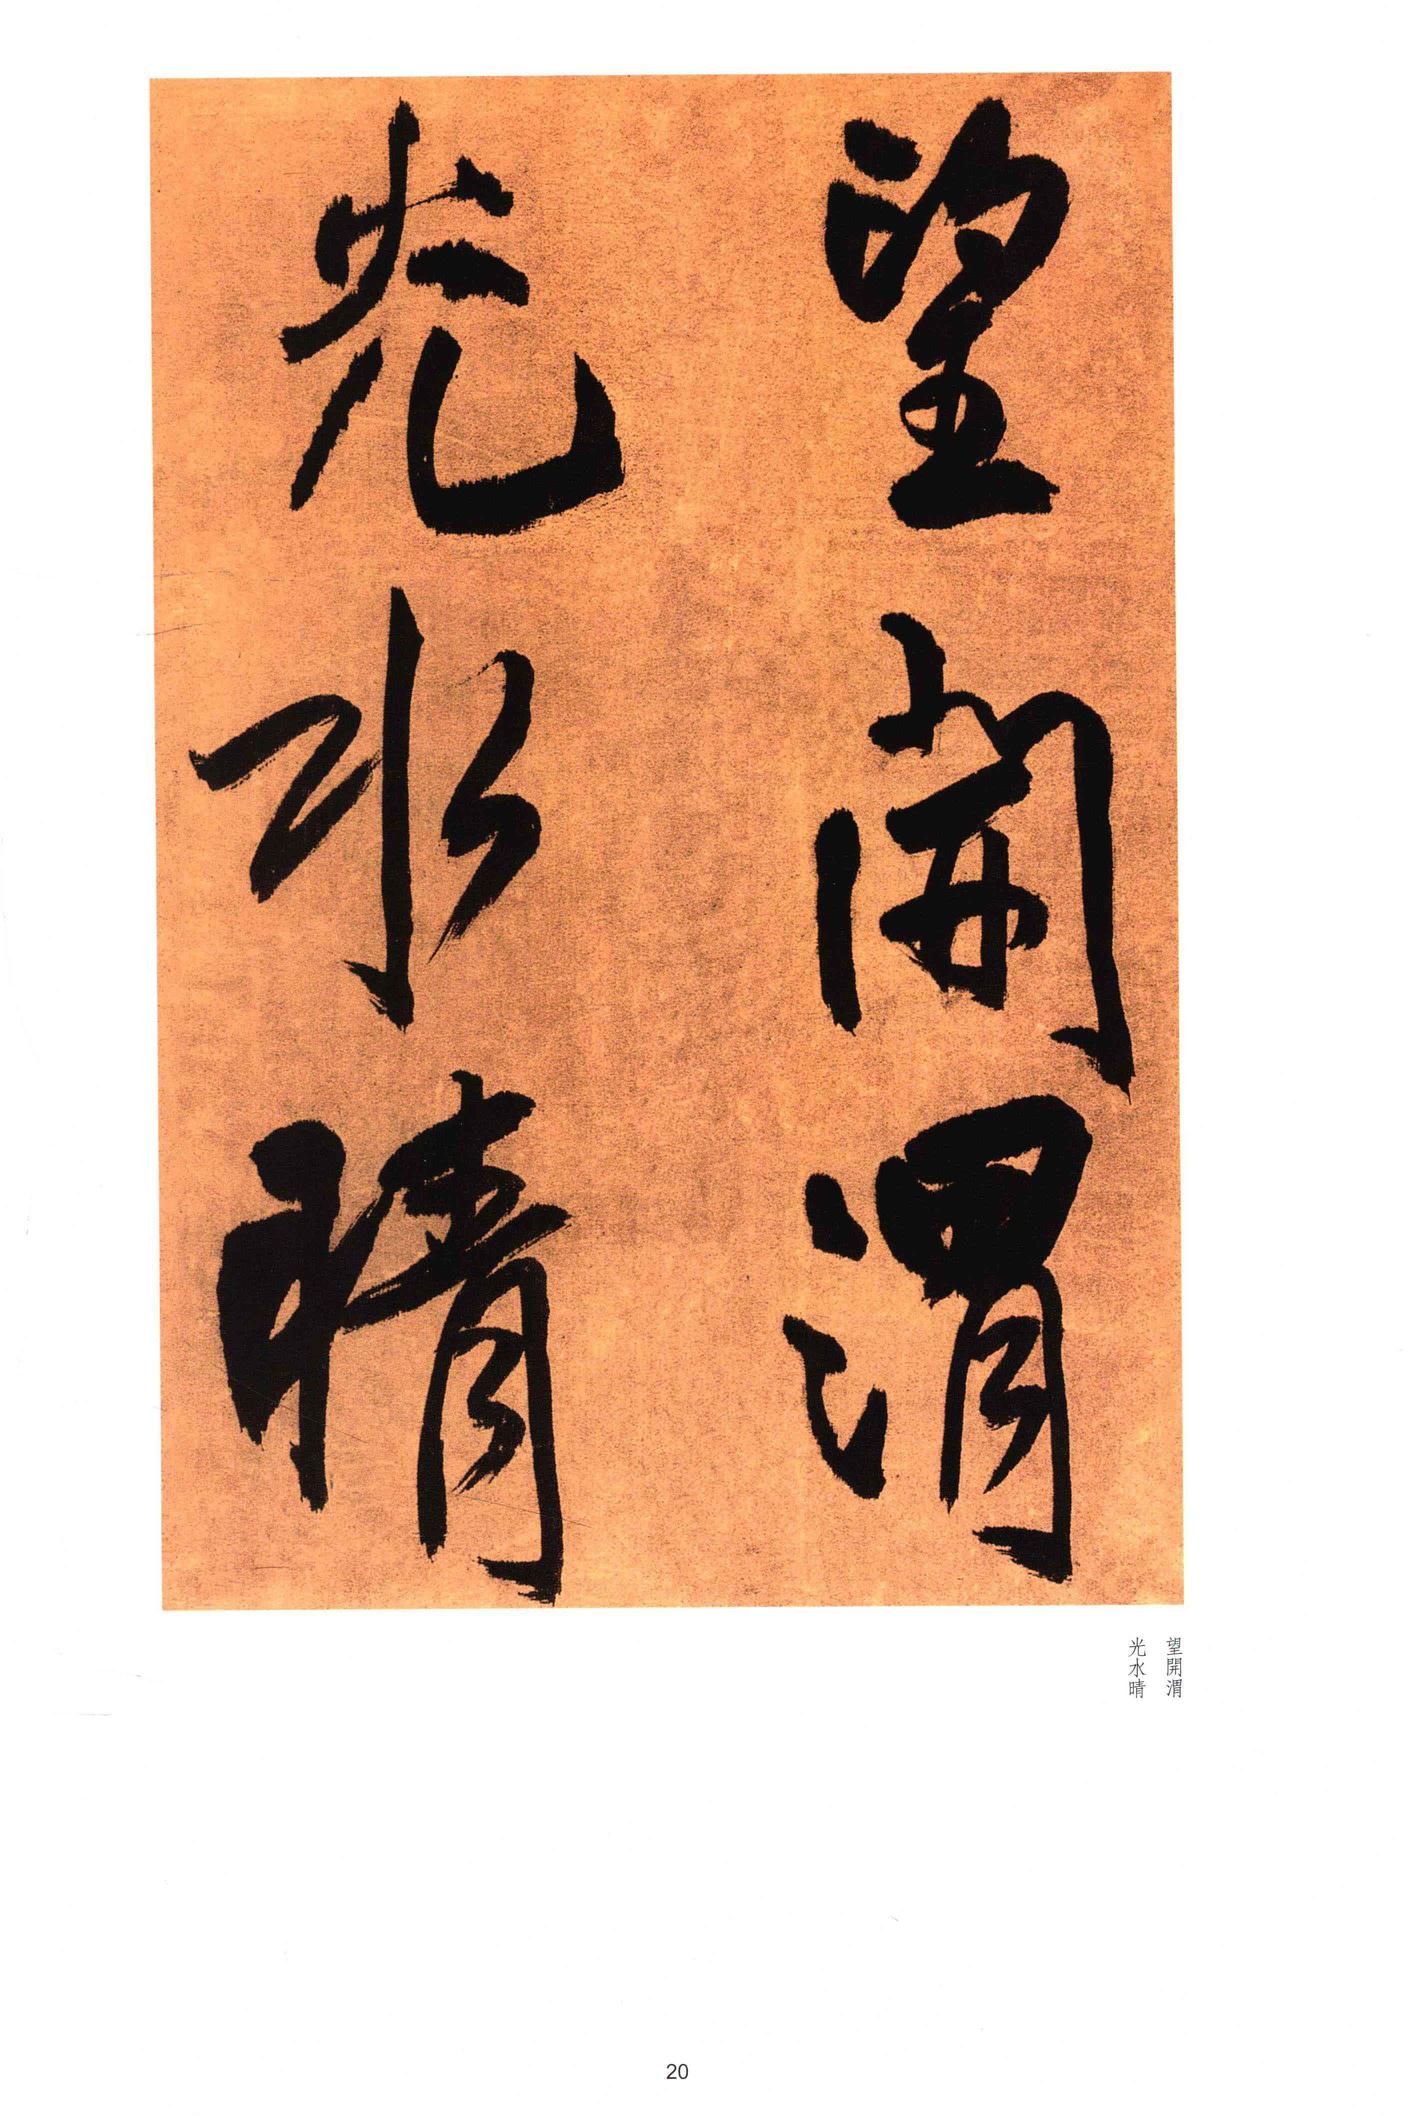 望開渭
光水晴
望開渭
光水晴
20